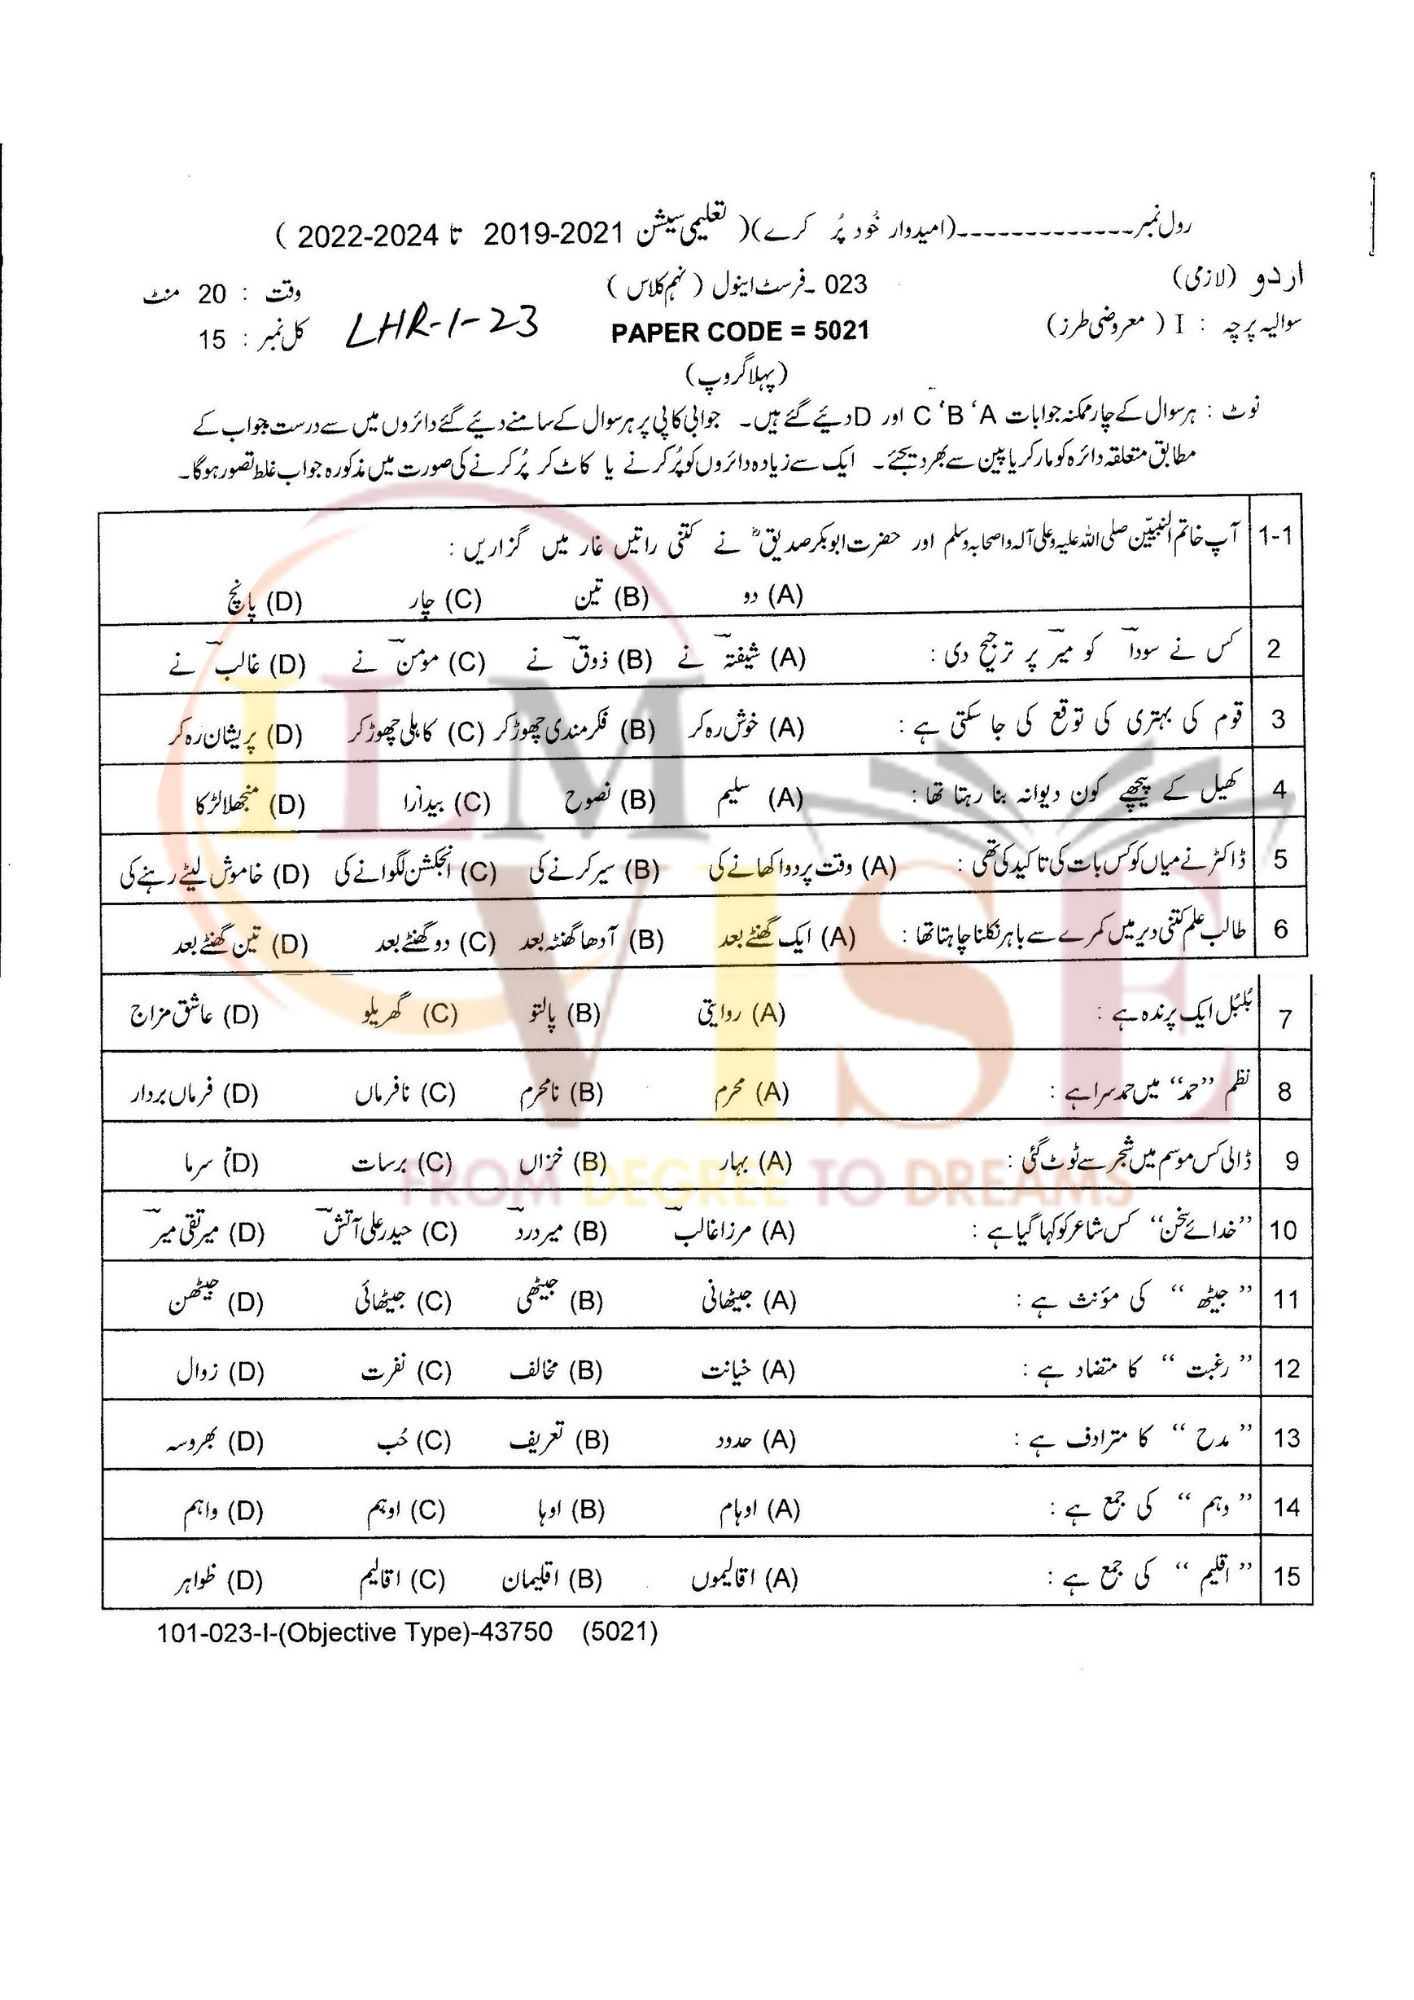 رول نمبر ------------- (امیدوار خُود پُر کرے) ( تعلیمی سیشن 2021-2019 تا 2024-2022 )
اردو (لازمی) 023 ۔ فرسٹ اینول ( نہم کلاس ) وقت : 20 منٹ
سوالیہ پرچہ : I ( معروضی طرز) PAPER CODE = 5021 LHR-1-23 کل نمبر : 15
(پہلا گروپ)
نوٹ : ہر سوال کے چار ممکنہ جوابات A ‘ B ‘ C اور D دئیے گئے ہیں۔ جوابی کاپی پر ہر سوال کے سامنے دئیے گئے دائروں میں سے درست جواب کے
مطابق متعلقہ دائرہ کو مارکر یا پین سے بھر دیجئے۔ ایک سے زیادہ دائروں کو پُر کرنے یا کاٹ کر پُر کرنے کی صورت میں مذکورہ جواب غلط تصور ہوگا۔
1-1 آپ خاتم النبیّین صلی اللہ علیہ وعلی آلہ واصحابہ وسلم اور حضرت ابوبکر صدیقؓ نے کتنی راتیں غار میں گزاریں :
(A) دو (B) تین (C) چار (D) پانچ
2 کس نے سودا کو میر پر ترجیح دی : (A) شیفتہ نے (B) ذوق نے (C) مومن نے (D) غالب نے
3 قوم کی بہتری کی توقع کی جا سکتی ہے : (A) خوش رہ کر (B) فکر مندی چھوڑ کر (C) کاہلی چھوڑ کر (D) پریشان رہ کر
4 کھیل کے پیچھے کون دیوانہ بنا رہتا تھا : (A) سلیم (B) نصوح (C) بیدارا (D) منجھلا لڑکا
5 ڈاکٹر نے میاں کو کس بات کی تاکید کی تھی : (A) وقت پر دوا کھانے کی (B) سیر کرنے کی (C) انجکشن لگوانے کی (D) خاموش لیٹے رہنے کی
6 طالب علم کتنی دیر میں کمرے سے باہر نکلنا چاہتا تھا : (A) ایک گھنٹے بعد (B) آدھا گھنٹہ بعد (C) دو گھنٹے بعد (D) تین گھنٹے بعد
7 بُلبُل ایک پرندہ ہے : (A) روایتی (B) پالتو (C) گھریلو (D) عاشق مزاج
8 نظم ”حمد“ میں حمد سرا ہے : (A) محرم (B) نامحرم (C) نافرماں (D) فرماں بردار
9 ڈالی کس موسم میں شجر سے ٹوٹ گئی : (A) بہار (B) خزاں (C) برسات (D) سرما
10 ”خدائے سخن“ کس شاعر کو کہا گیا ہے : (A) مرزا غالب (B) میر درد (C) حیدر علی آتش (D) میر تقی میر
11 ” جیٹھ “ کی مؤنث ہے : (A) جیٹھانی (B) جیٹھی (C) جیٹھائی (D) جیٹھن
12 ” رغبت “ کا متضاد ہے : (A) خیانت (B) مخالف (C) نفرت (D) زوال
13 ” مدح “ کا مترادف ہے : (A) حدود (B) تعریف (C) حُب (D) بھروسہ
14 ” وہم “ کی جمع ہے : (A) اوہام (B) اوہا (C) اوہم (D) واہم
15 ” اقلیم “ کی جمع ہے : (A) اقالیموں (B) اقلیمان (C) اقالیم (D) ظواہر
101-023-I-(Objective Type)-43750 (5021)
ILM
VISE
FROM DEGREE TO DREAMS